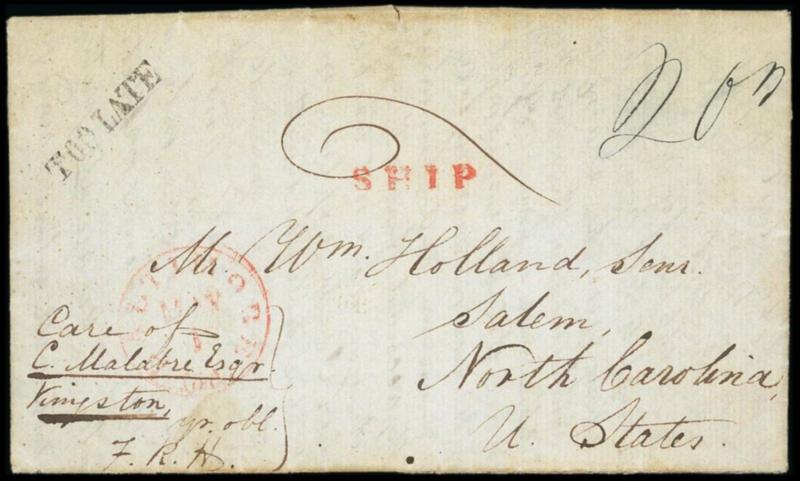 TOO LATE
SHIP
Mr. Wm. Holland, Senr.
Salem,
North Carolina,
U. States.
Care of
C. Malabre Esqr.
Kingston,
yr. obl.
F. R. H.